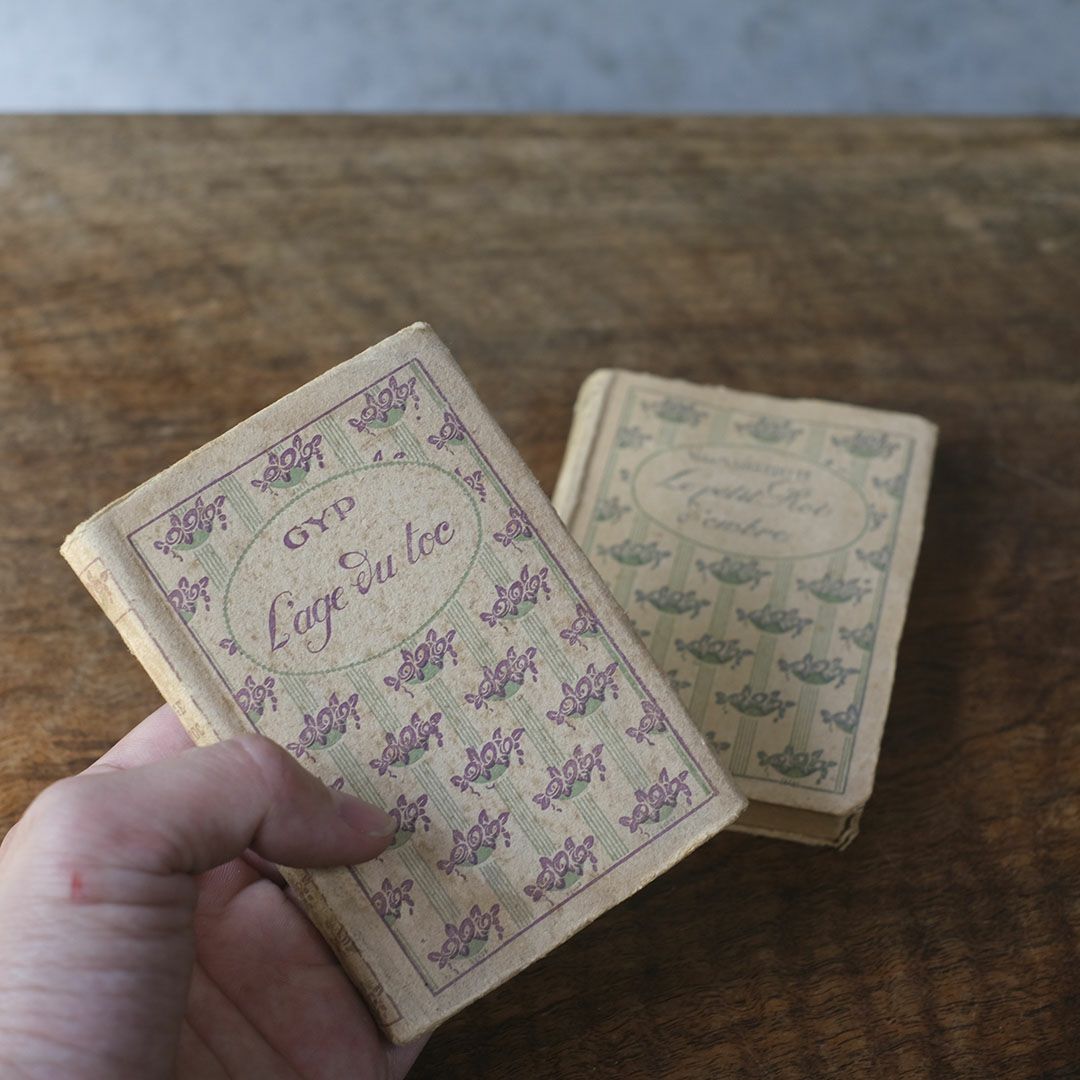 GYP
L'age du toc
Le petit Roi
d'ombre